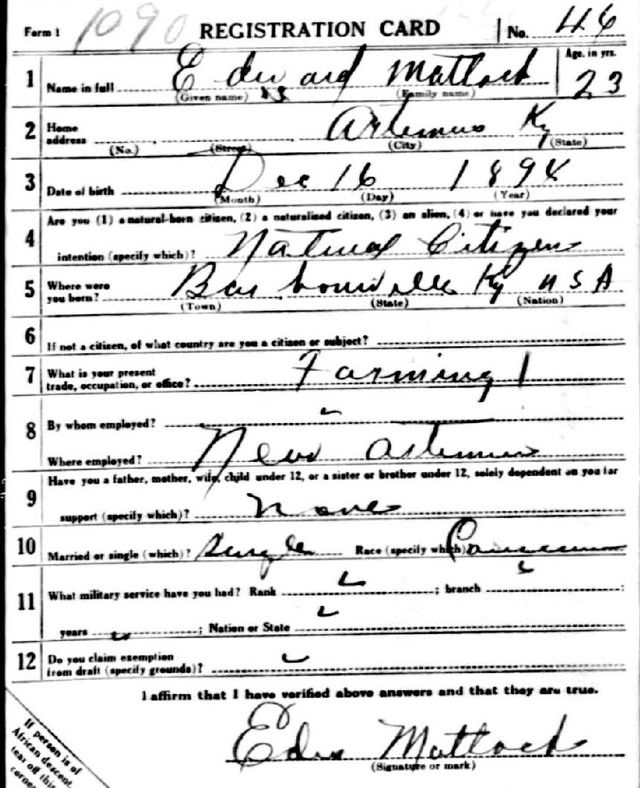 Form 1 1090 REGISTRATION CARD No. 46
1 Name in full Edward Matlock Age, in yrs. 23
(Given name) (Family name)
2 Home address Artemus Ky
(No.) (Street) (City) (State)
3 Date of birth Dec 16 1894
(Month) (Day) (Year)
4 Are you (1) a natural-born citizen, (2) a naturalized citizen, (3) an alien, (4) or have you declared your
intention (specify which)? Natural Citizen
5 Where were you born? Barbourville Ky U S A
(Town) (State) (Nation)
6 If not a citizen, of what country are you a citizen or subject?
7 What is your present trade, occupation, or office? Farming 1
8 By whom employed?
Where employed? Near Artemus
9 Have you a father, mother, wife, child under 12, or a sister or brother under 12, solely dependent on you for
support (specify which)? None
10 Married or single (which)? Single Race (specify which)
11 What military service have you had? Rank ; branch ;
years ; Nation or State
12 Do you claim exemption from draft (specify grounds)?
I affirm that I have verified above answers and that they are true.
Edw Matlock
(Signature or mark)
If person is of
African descent,
tear off this
corner